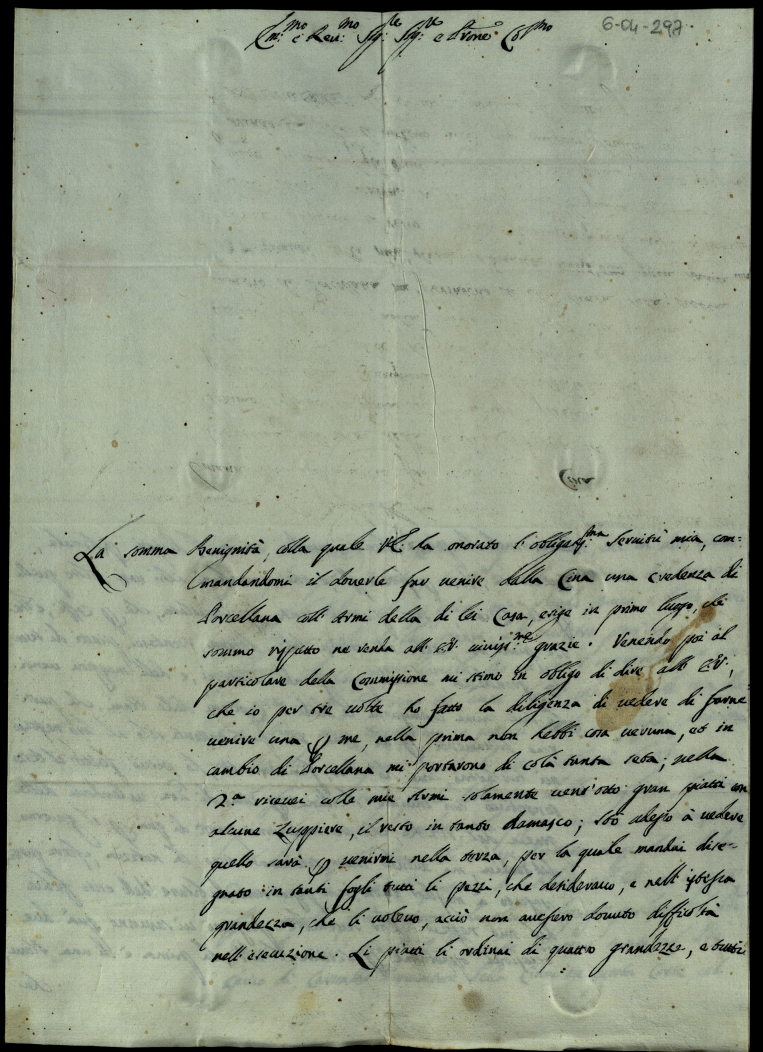 6-04-297
Em:mo e Rev:mo Sig:re Sig:re e Prone Col:mo
La somma Benignità, colla quale V.E. ha onorato l'obligatis:ma Servitù mia, com=
mandandomi il doverle far venire dalla Cina una Credenza di
Porcellana coll'Armi della di lei Casa, esige in primo luogo, che
sommo rispetto ne renda all'E.V. vivis:me grazie. Venendo poi al
particolare della Commissione mi stimo in obligo di dire all'E.V.,
che io per tre volte ho fatto la diligenza di vedere di farne
venire una p me, nella prima non hebbi cosa veruna, et in
cambio di Porcellana mi portarono di colà tanta seta; nella
2.a ricevei colle mie Armi solamente vent'otto gran piatti con
alcune Zuppiere, il resto in tanto Damasco; Stò adesso à vedere
quello sarà p venirmi nella terza, per la quale mandai dise=
gnato in tanti fogli tutti li pezzi, che desideravo, e nell'istessa
grandezza, che li volevo, acciò non avessero dovuto difficoltà
nell'esecuzione. Li piatti li ordinai di quattro grandezze, e tutti
Cina